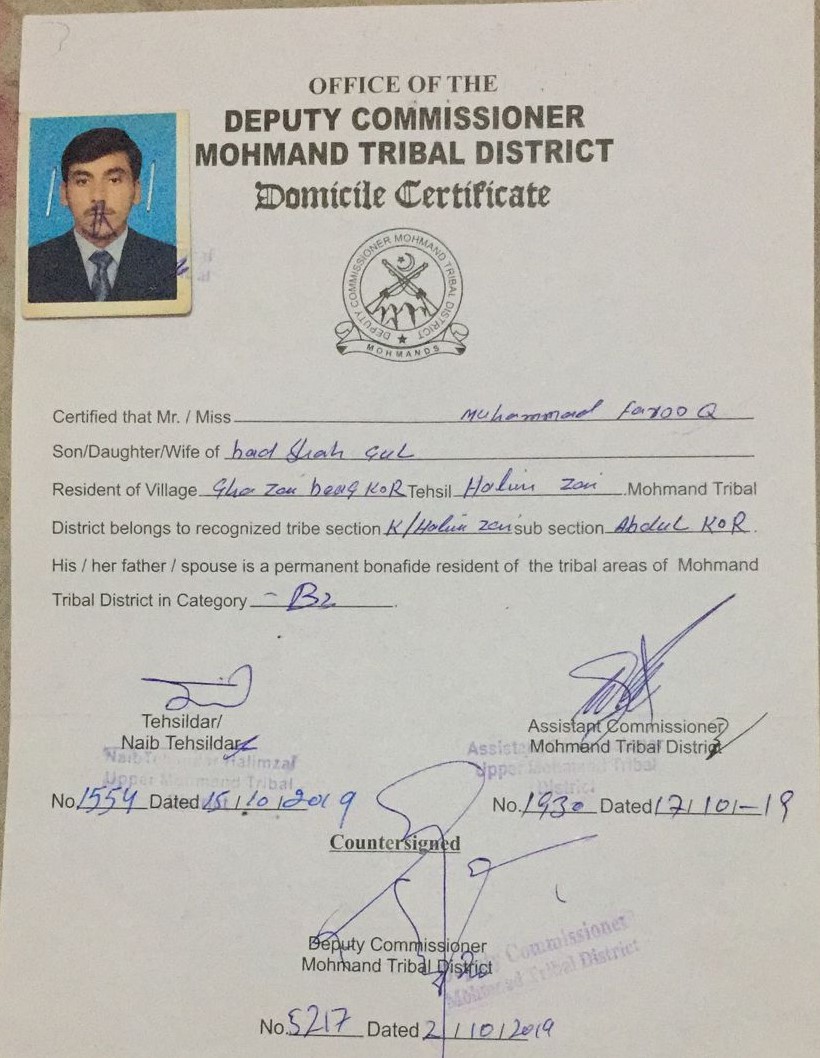 OFFICE OF THE
DEPUTY COMMISSIONER
MOHMAND TRIBAL DISTRICT
Domicile Certificate
DEPUTY COMMISSIONER MOHMAND TRIBAL DISTRICT
MOHMANDS
Certified that Mr. / Miss Muhammad FarooQ
Son/Daughter/Wife of bad Shah Gul
Resident of Village Gha Zan baag KOR Tehsil Halim Zai .Mohmand Tribal
District belongs to recognized tribe section K/Halim Zai sub section Abdul KOR.
His / her father / spouse is a permanent bonafide resident of the tribal areas of Mohmand
Tribal District in Category B2.
Tehsildar/
Naib Tehsildar
Halimzai
Upper Mohmand Tribal
Assistant Commissioner
Mohmand Tribal District
Upper Mohmand Tribal
District
No. 1554 Dated 15/10/2019
No. 1930 Dated 17/10/-19
Countersigned
Deputy Commissioner
Mohmand Tribal District
Deputy Commissioner
Mohmand Tribal District
No. 5217 Dated 2/10/2019